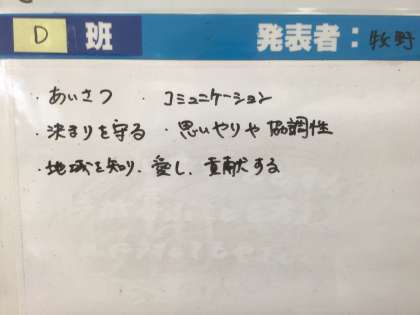 D 班 発表者：牧野
・あいさつ ・コミュニケーション
・決まりを守る ・思いやりや協調性
・地域を知り、愛し、貢献する